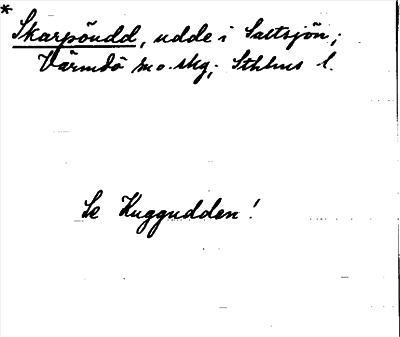 * Skarpöudd, udde i Saltsjön;
Värmdö sn o. skg; Sthlms l.
Se Kuggudden!